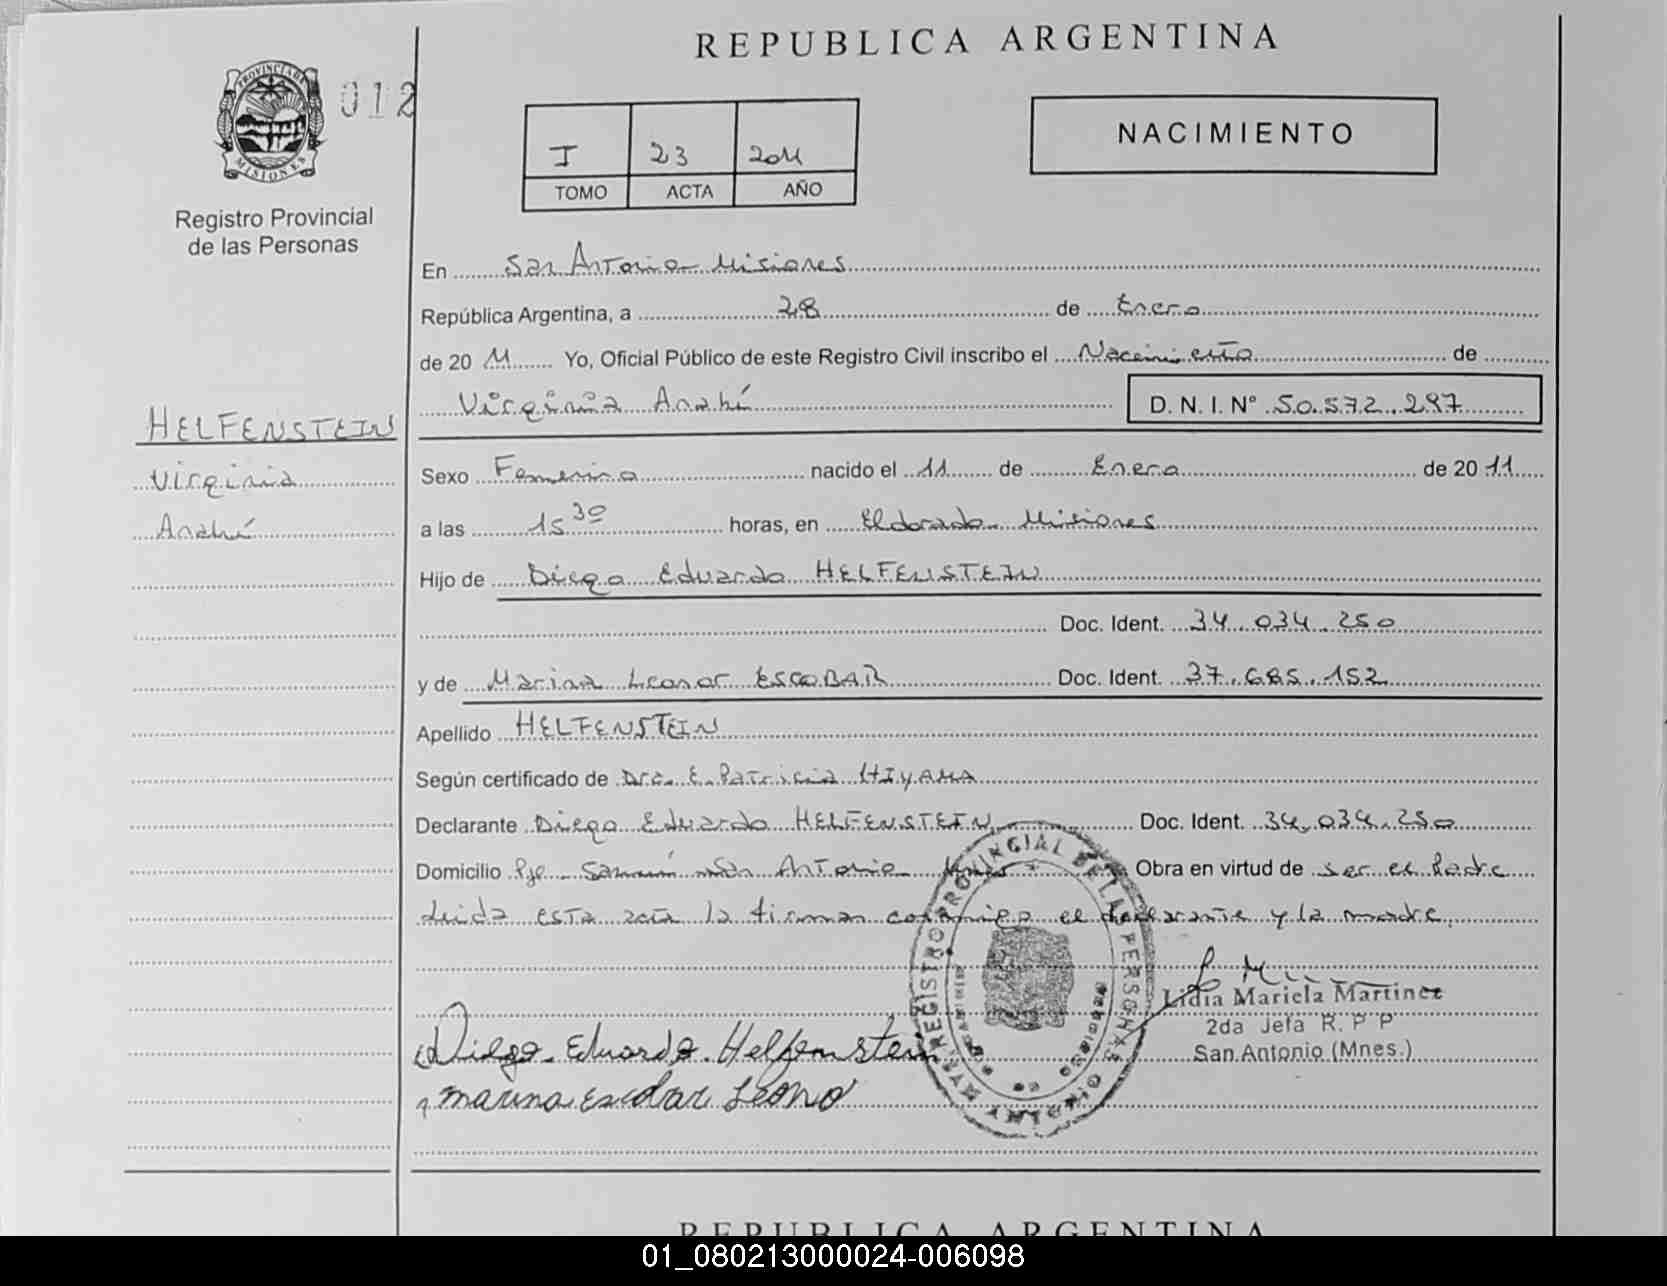 REPUBLICA ARGENTINA
PROVINCIA DE MISIONES
012
NACIMIENTO
I 23 2011
TOMO ACTA AÑO
Registro Provincial
de las Personas
En San Antonio Misiones
República Argentina, a 28 de Enero
de 20 11 Yo, Oficial Público de este Registro Civil inscribo el Nacimiento de
Virginia Anahí D. N. I. Nº 50.572.297
HELFENSTEIN
Virginia
Anahí
Sexo Femenino nacido el 11 de Enero de 20 11
a las 15 30 horas, en Eldorado Misiones
Hijo de Diego Eduardo HELFENSTEIN
Doc. Ident. 34.034.250
y de Marina Leonor ESCOBAR Doc. Ident. 37.685.152
Apellido HELFENSTEIN
Según certificado de Dra. E. Patricia HIYAMA
Declarante Diego Eduardo HELFENSTEIN Doc. Ident. 34.034.250
Domicilio Pje. San Antonio Mnes Obra en virtud de ser el Padre
Leida esta acta la firman conmigo el declarante y la madre.
REGISTRO PROVINCIAL DE LAS PERSONAS
Lidia Mariela Martinez
2da Jefa R. P P
San Antonio (Mnes.)
Diego Eduardo Helfenstein
marina escobar Leono
REPUBLICA ARGENTINA
01_080213000024-006098